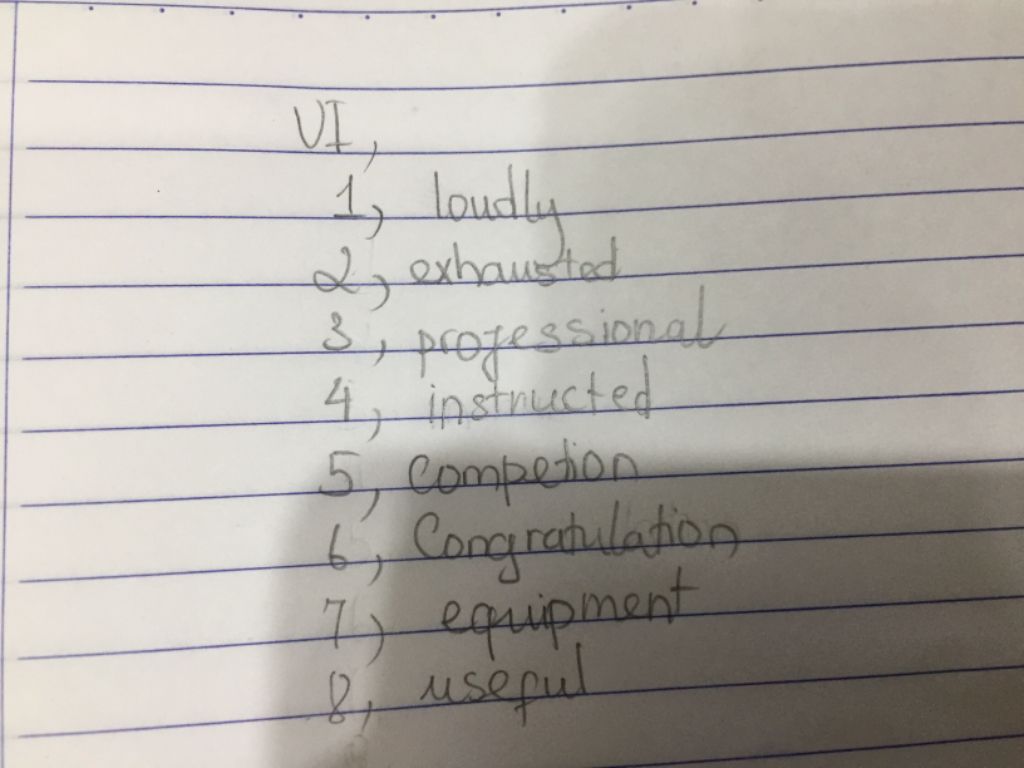 VI,
1, loudly
2, exhausted
3, professional
4, instructed
5, Competion
6, Congratulation
7, equipment
8, useful